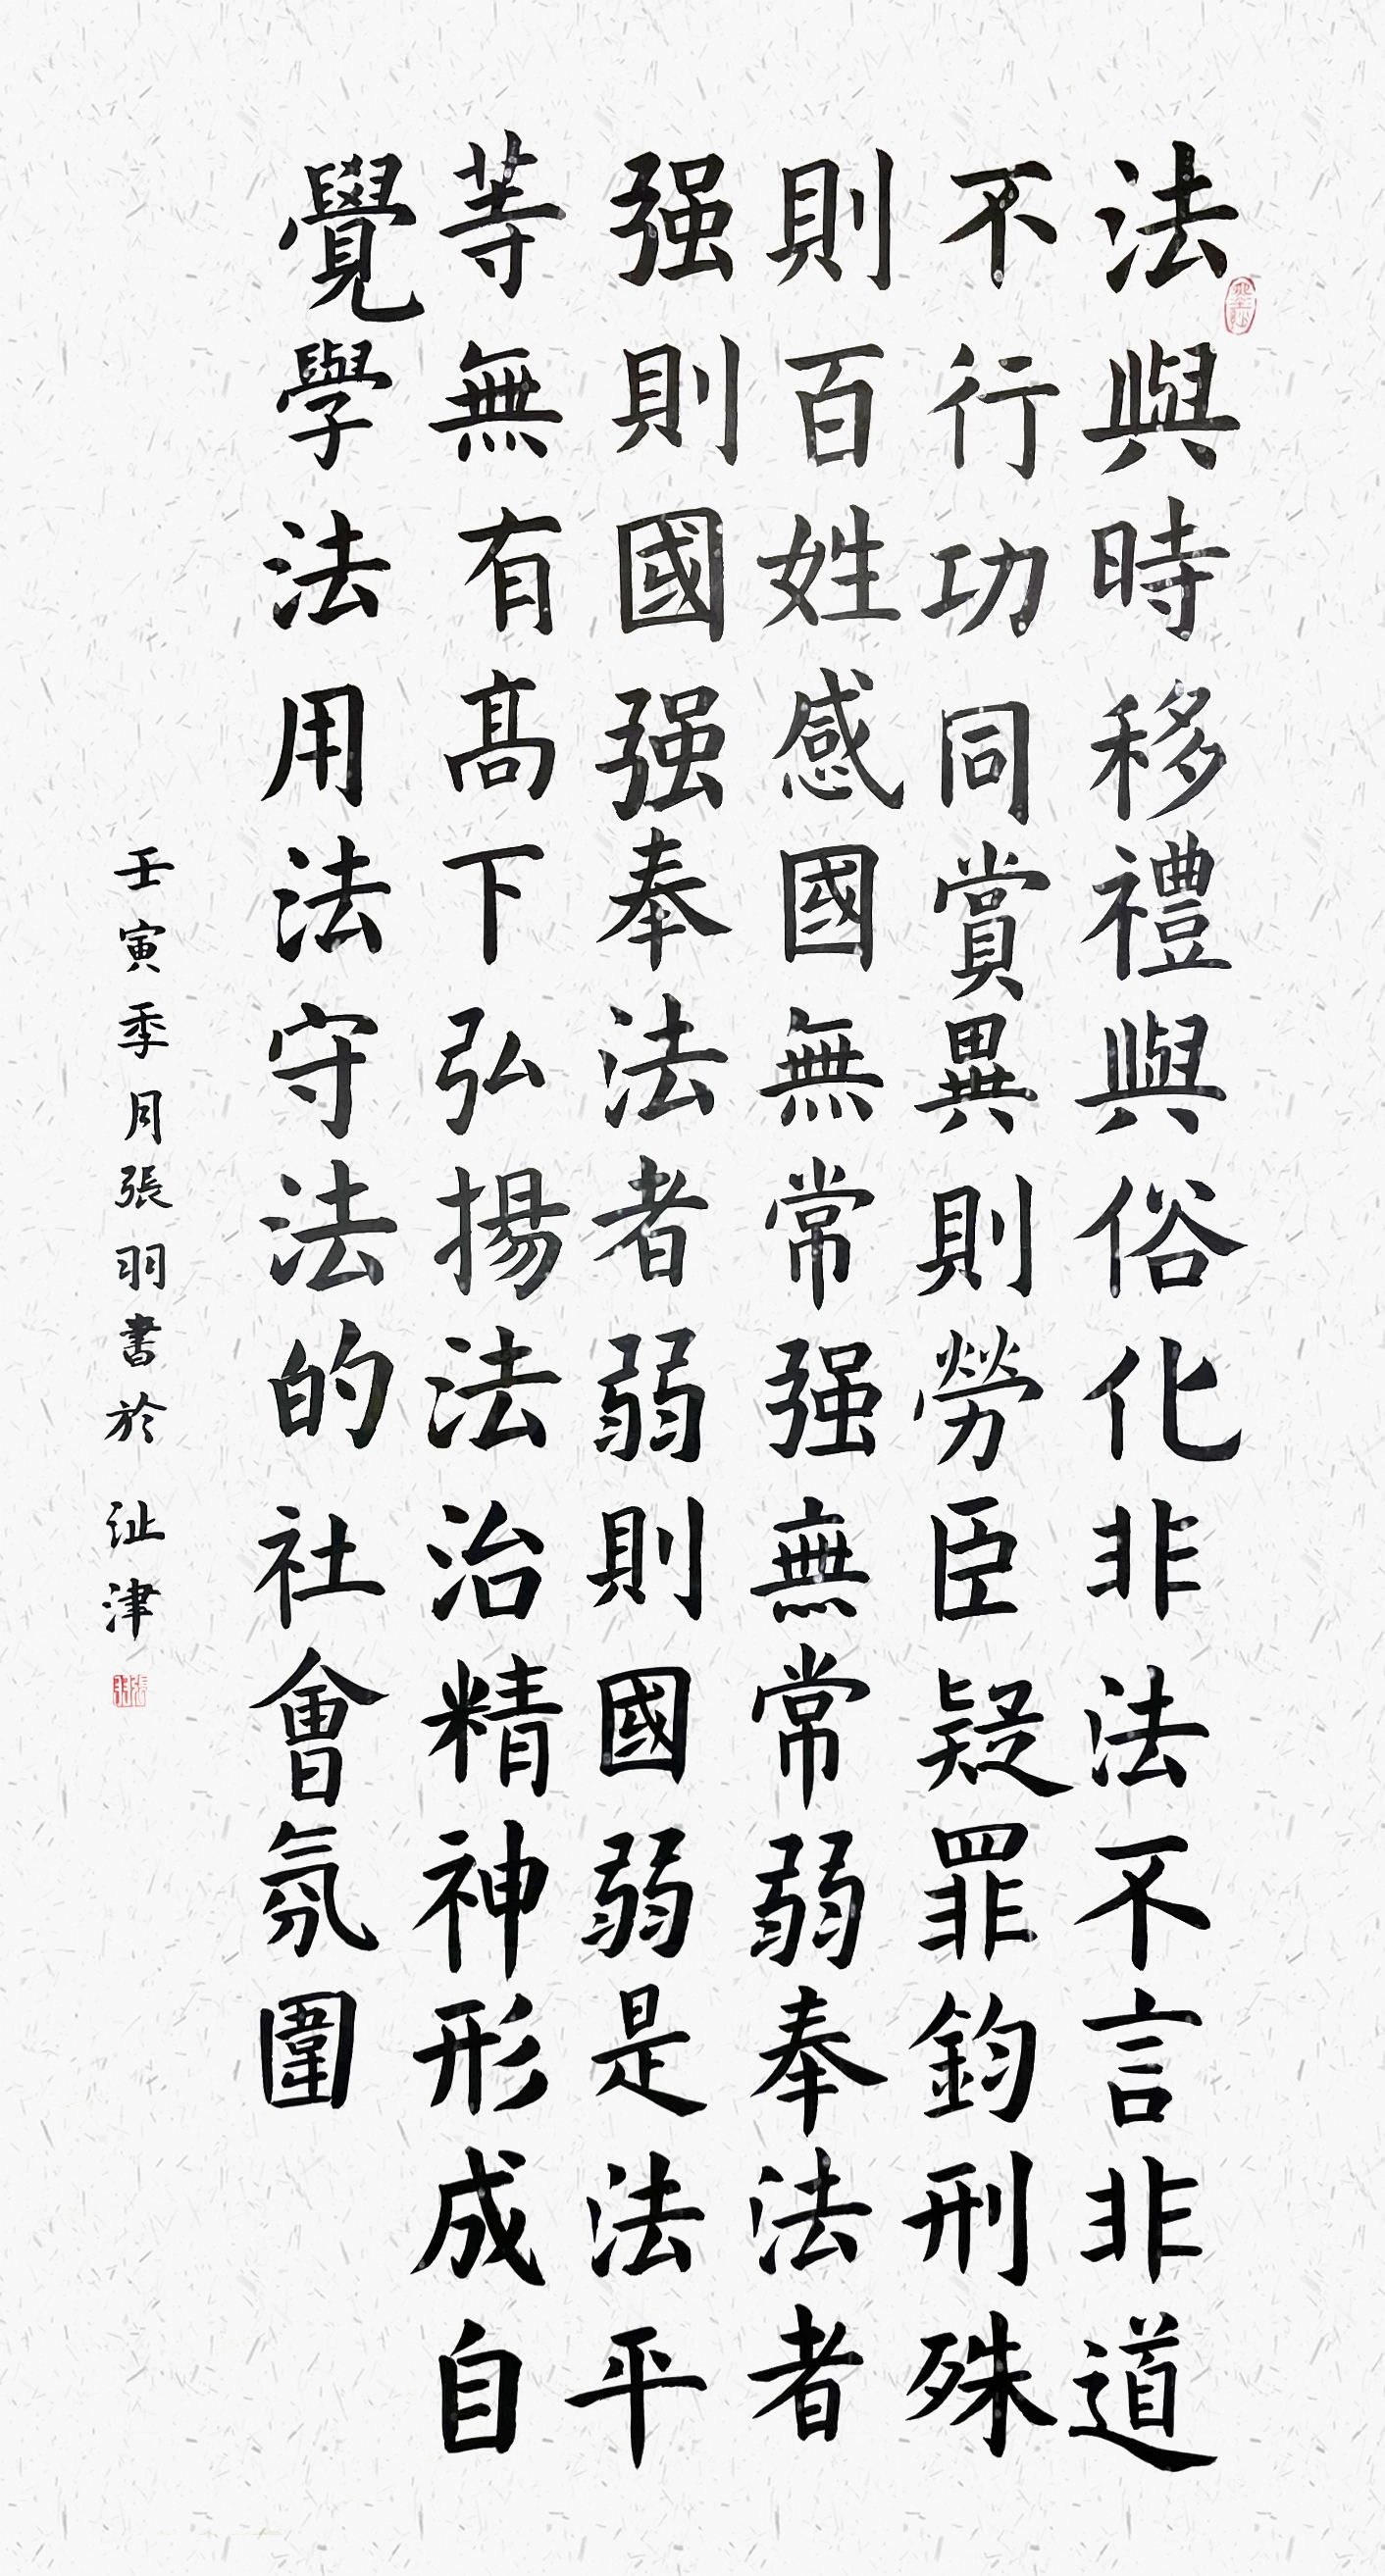 法與時移禮與俗化非法不言非道
不行功同賞異則勞臣疑罪鈞刑殊
則百姓感國無常强無常弱奉法者
强則國强奉法者弱則國弱是法平
等無有高下弘揚法治精神形成自
覺學法用法守法的社會氛圍
壬寅季月張羽書於沚津
張羽